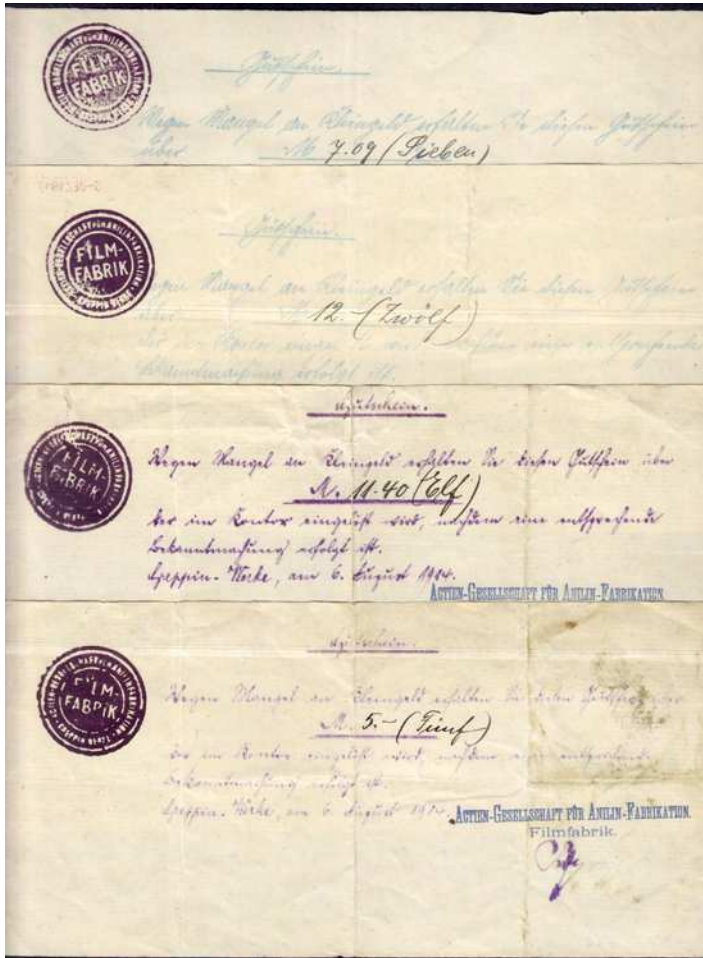 FILM-
FABRIK
Gutschein.
Wegen Mangel an Kleingeld erhalten Sie diesen Gutschein
über M 7.09 (Sieben)
FILM-
FABRIK
Gutschein.
Wegen Mangel an Kleingeld erhalten Sie diesen Gutschein
über M 12.- (Zwölf)
Bekanntmachung erfolgt ist.
FILM-
FABRIK
Gutschein.
Wegen Mangel an Kleingeld erhalten Sie diesen Gutschein über
M. 11.40 (Elf)
der im Kontor eingelöst wird, nachdem eine entsprechende
Bekanntmachung erfolgt ist.
Greppin-Werke, am 6. August 1914.
ACTIEN-GESELLSCHAFT FÜR ANILIN-FABRIKATION.
FILM-
FABRIK
Gutschein.
Wegen Mangel an Kleingeld erhalten Sie diesen Gutschein über
M. 5.- (Fünf)
der im Kontor eingelöst wird, nachdem eine entsprechende
Bekanntmachung erfolgt ist.
Greppin-Werke, am 6. August 1914.
ACTIEN-GESELLSCHAFT FÜR ANILIN-FABRIKATION.
Filmfabrik.